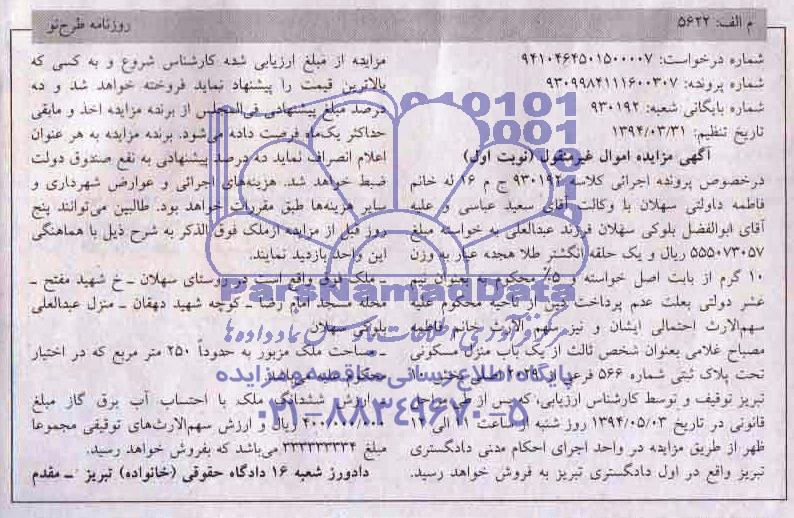 م الف: ۵۶۲۲
روزنامه طرح نو
شماره درخواست: ۹۴۱۰۴۶۴۵۰۱۵۰۰۰۰۷
شماره پرونده: ۹۳۰۹۹۸۴۱۱۱۶۰۰۳۰۷
شماره بایگانی شعبه: ۹۳۰۱۹۲
تاریخ تنظیم: ۱۳۹۴/۰۳/۳۱
آگهی مزایده اموال غیرمنقول (نوبت اول)
درخصوص پرونده اجرائی کلاسه ۹۳۰۱۹۲ ج م ۱۶ له خانم
فاطمه داولتی سهلان با وکالت آقای سعید عباسی و علیه
آقای ابوالفضل بلوکی سهلان فرزند عبدالعلی به خواسته مبلغ
۵۵۵۰۷۳۰۵۷ ریال و یک حلقه انگشتر طلا هجده عیار به وزن
۱۰ گرم از بابت اصل خواسته و ۵٪ محکوم به بعنوان نیم
عشر دولتی بعلت عدم پرداخت دین از ناحیه محکوم علیه
سهم‌الارث احتمالی ایشان و نیز سهم الارث خانم فاطمه
مصباح غلامی بعنوان شخص ثالث از یک باب منزل مسکونی
تحت پلاک ثبتی شماره ۵۶۶ فرعی از ۲۰۲۹ اصلی بخش ۱۰
تبریز توقیف و توسط کارشناس ارزیابی، که پس از طی مراحل
قانونی در تاریخ ۱۳۹۴/۰۵/۰۳ روز شنبه از ساعت ۱۱ الی ۱۲
ظهر از طریق مزایده در واحد اجرای احکام مدنی دادگستری
تبریز واقع در اول دادگستری تبریز به فروش خواهد رسید.
مزایده از مبلغ ارزیابی شده کارشناس شروع و به کسی که
بالاترین قیمت را پیشنهاد نماید فروخته خواهد شد و ده
درصد مبلغ پیشنهادی فی‌المجلس از برنده مزایده اخذ و مابقی
حداکثر یک‌ماه فرصت داده می‌شود. برنده مزایده به هر عنوان
اعلام انصراف نماید ده درصد پیشنهادی به نفع صندوق دولت
ضبط خواهد شد. هزینه‌های اجرائی و عوارض شهرداری و
سایر هزینه‌ها طبق مقررات خواهد بود. طالبین می‌توانند پنج
روز قبل از مزایده ازملک فوق الذکر به شرح ذیل با هماهنگی
این واحد بازدید نمایند.
ـ ملک فوق واقع است در روستای سهلان ـ خ شهید مفتح ـ
محله مسجد امام رضا ـ کوچه شهید دهقان ـ منزل عبدالعلی
بلوکی سهلان
ـ مساحت ملک مزبور به حدوداً ۲۵۰ متر مربع که در اختیار
محکوم علیه می‌باشد
ـ ارزش ششدانگ ملک با احتساب آب برق گاز مبلغ
۴۰۰/۰۰۰/۰۰۰ ریال و ارزش سهم‌الارث‌های توقیفی مجموعا
مبلغ ۳۳۳۳۳۳۳۳۴ می‌باشد که بفروش خواهد رسید.
دادورز شعبه ۱۶ دادگاه حقوقی (خانواده) تبریز ـ مقدم
ParsNamadData
پایگاه اطلاع رسانی مناقصه و مزایده
۰۲۱-۸۸۳۴۹۶۷۰-۵